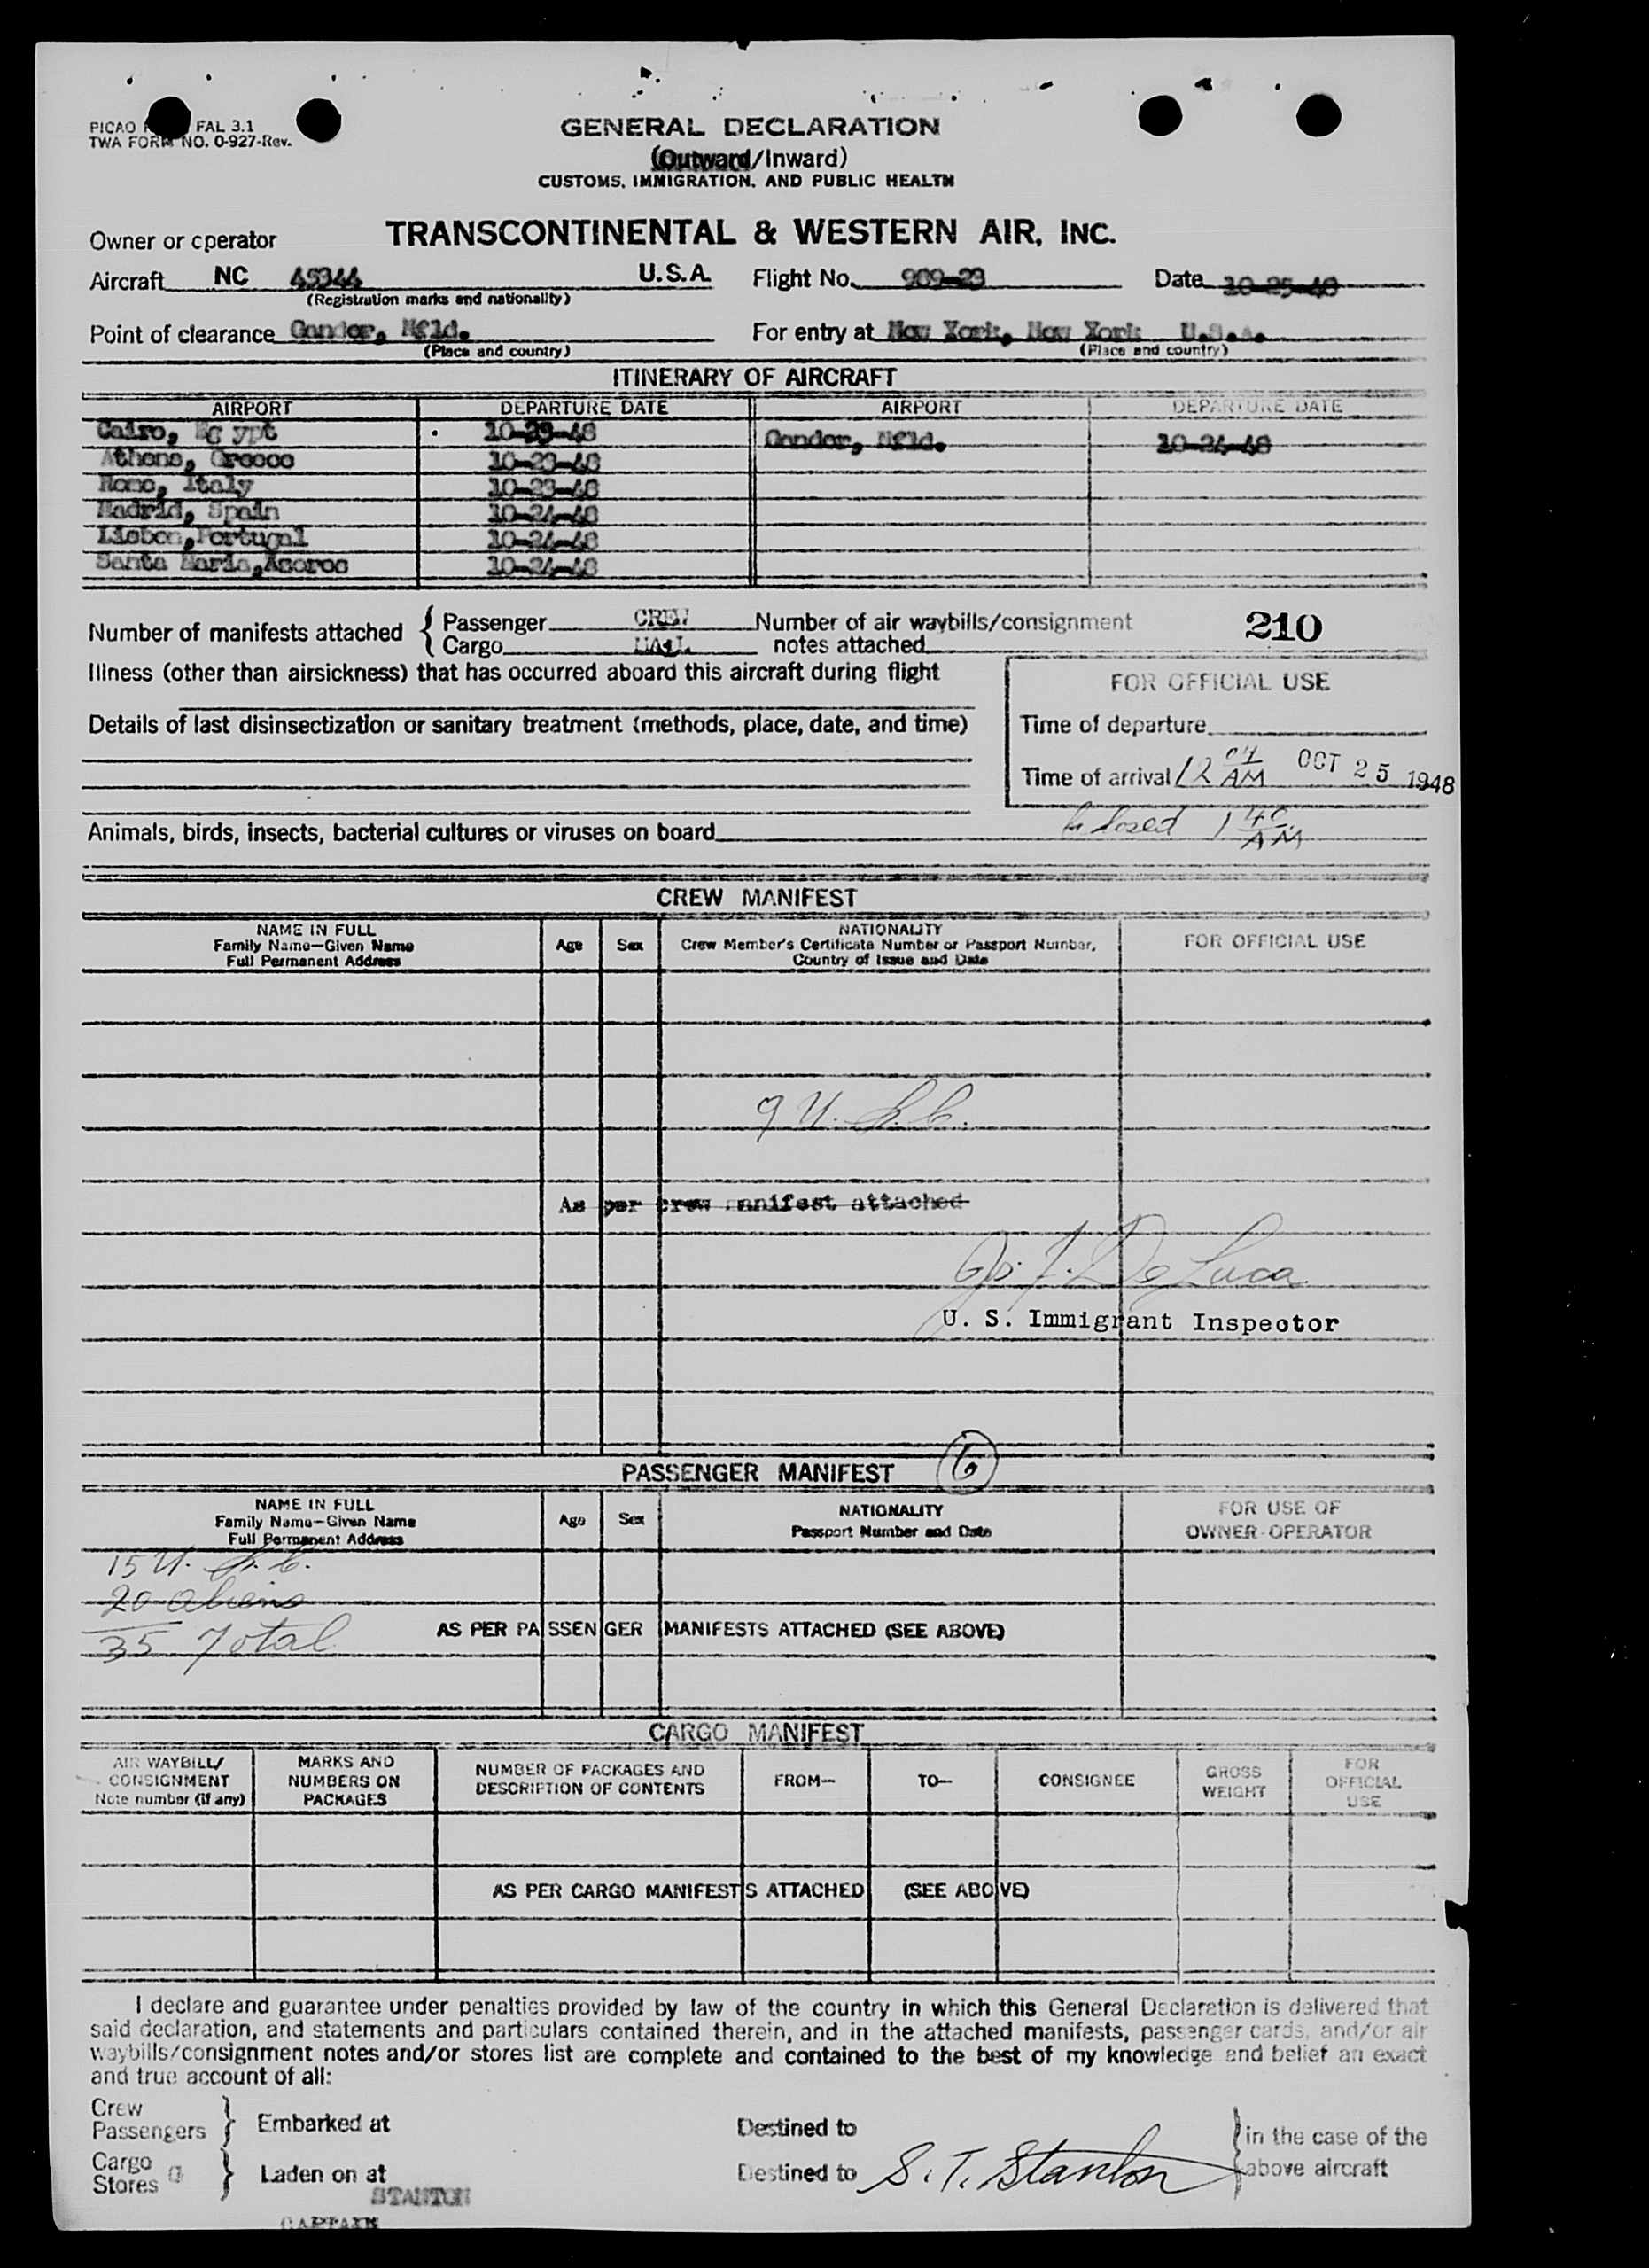 PICAO FAL 3.1
TWA FORM NO. O-927-Rev.
GENERAL DECLARATION
(Outward/Inward)
CUSTOMS, IMMIGRATION, AND PUBLIC HEALTH
Owner or operator TRANSCONTINENTAL & WESTERN AIR, INC.
Aircraft NC 45344 U.S.A. Flight No. 909-23 Date 10-25-48
(Registration marks and nationality)
Point of clearance Gander, Nfld. For entry at New York, New York U.S.A.
(Place and country) (Place and country)
ITINERARY OF AIRCRAFT
AIRPORT DEPARTURE DATE AIRPORT DEPARTURE DATE
Cairo, Eg ypt 10-23-48 Gander, Nfld. 10-24-48
Athens, Greece 10-23-48
Rome, Italy 10-23-48
Madrid, Spain 10-24-48
Lisbon, Portugal 10-24-48
Santa Maria, Azores 10-24-48
Number of manifests attached { Passenger CREW Number of air waybills/consignment 210
Cargo MAIL notes attached
Illness (other than airsickness) that has occurred aboard this aircraft during flight
FOR OFFICIAL USE
Details of last disinsectization or sanitary treatment (methods, place, date, and time)
Time of departure
Time of arrival 12 04 AM OCT 25 1948
Animals, birds, insects, bacterial cultures or viruses on board
closed 1 40 AM
CREW MANIFEST
NAME IN FULL
Family Name—Given Name
Full Permanent Address
Age Sex
NATIONALITY
Crew Member's Certificate Number or Passport Number,
Country of Issue and Date
FOR OFFICIAL USE
9 U.S.C.
As per crew manifest attached
Jos. F. De Luca
U. S. Immigrant Inspector
PASSENGER MANIFEST 6
NAME IN FULL
Family Name—Given Name
Full Permanent Address
Age Sex
NATIONALITY
Passport Number and Date
FOR USE OF
OWNER-OPERATOR
15 U.S.C.
20 Aliens
35 Total AS PER PASSENGER MANIFESTS ATTACHED (SEE ABOVE)
CARGO MANIFEST
AIR WAYBILL/
CONSIGNMENT
Note number (if any)
MARKS AND
NUMBERS ON
PACKAGES
NUMBER OF PACKAGES AND
DESCRIPTION OF CONTENTS
FROM— TO— CONSIGNEE
GROSS
WEIGHT
FOR
OFFICIAL
USE
AS PER CARGO MANIFESTS ATTACHED (SEE ABOVE)
I declare and guarantee under penalties provided by law of the country in which this General Declaration is delivered that
said declaration, and statements and particulars contained therein, and in the attached manifests, passenger cards, and/or air
waybills/consignment notes and/or stores list are complete and contained to the best of my knowledge and belief an exact
and true account of all:
Crew
Passengers } Embarked at Destined to } in the case of the
Cargo
Stores } Laden on at Destined to S. T. Stanton above aircraft
STANTON
CAPTAIN